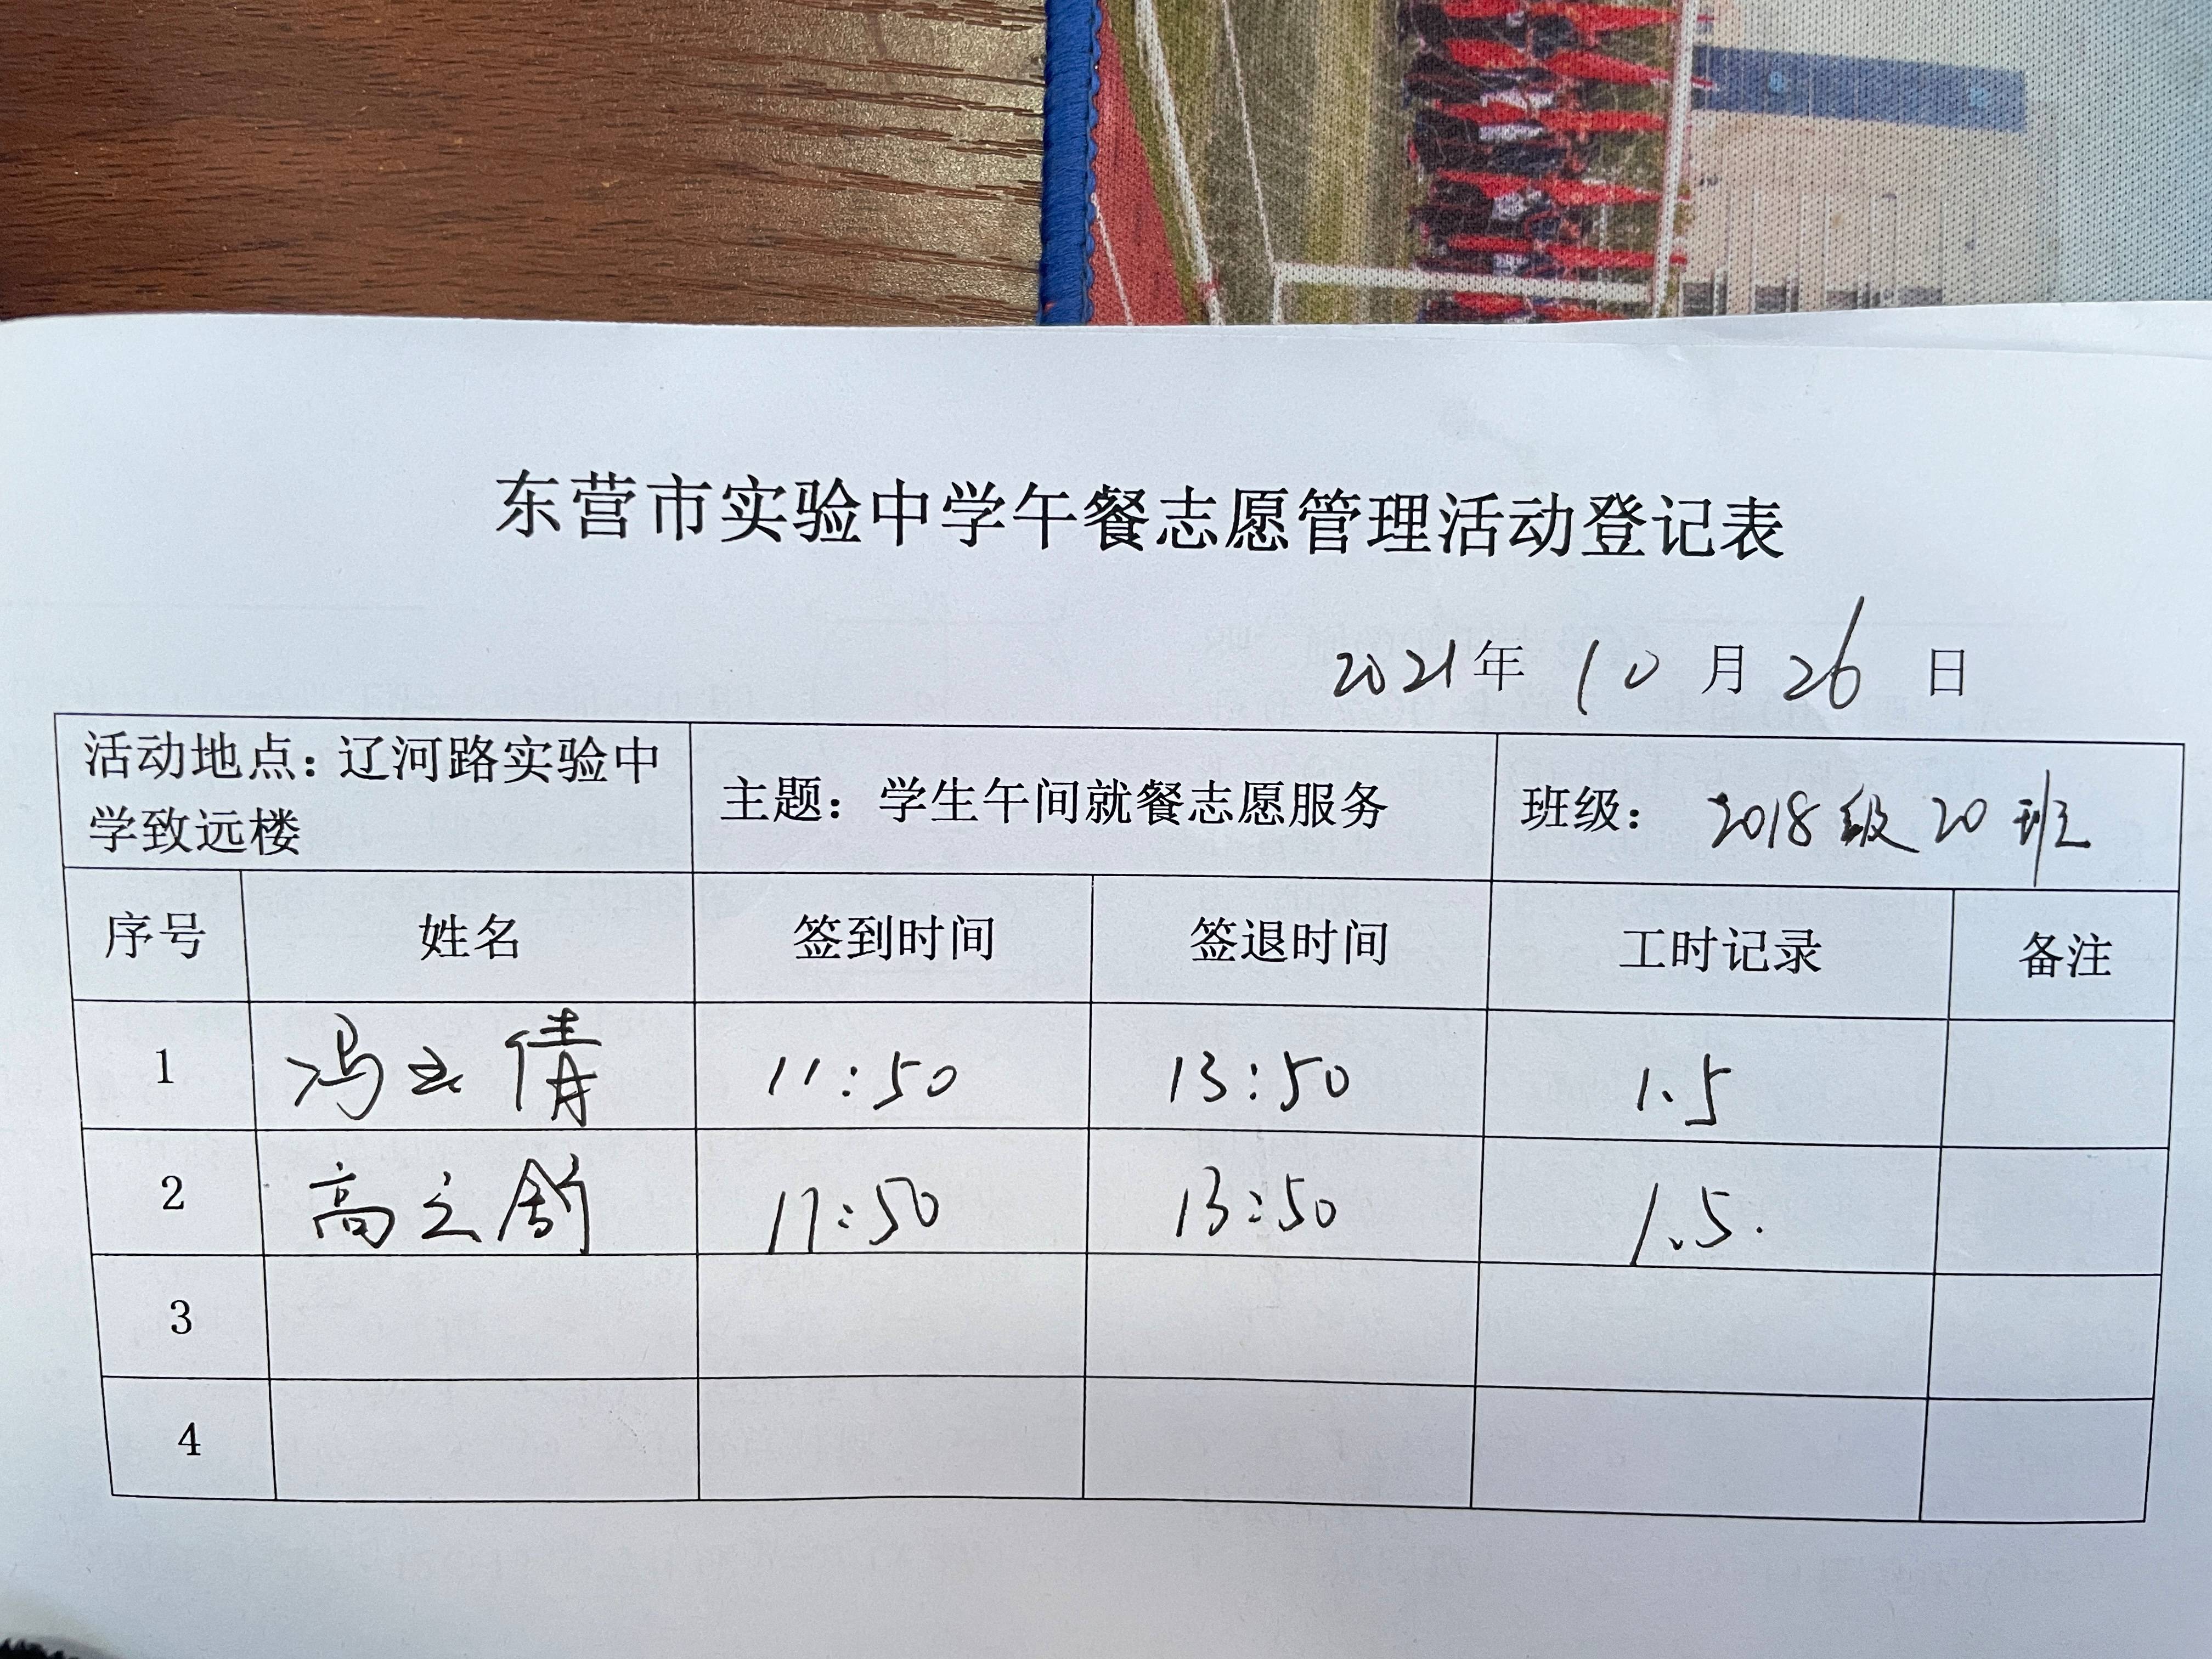 东营市实验中学午餐志愿管理活动登记表
2021年 10 月 26 日
活动地点：辽河路实验中
学致远楼
主题：学生午间就餐志愿服务
班级： 2018级20班
序号 姓名 签到时间 签退时间 工时记录 备注
1 冯 倩 11:50 13:50 1.5
2 高 11:50 13:50 1.5.
3
4